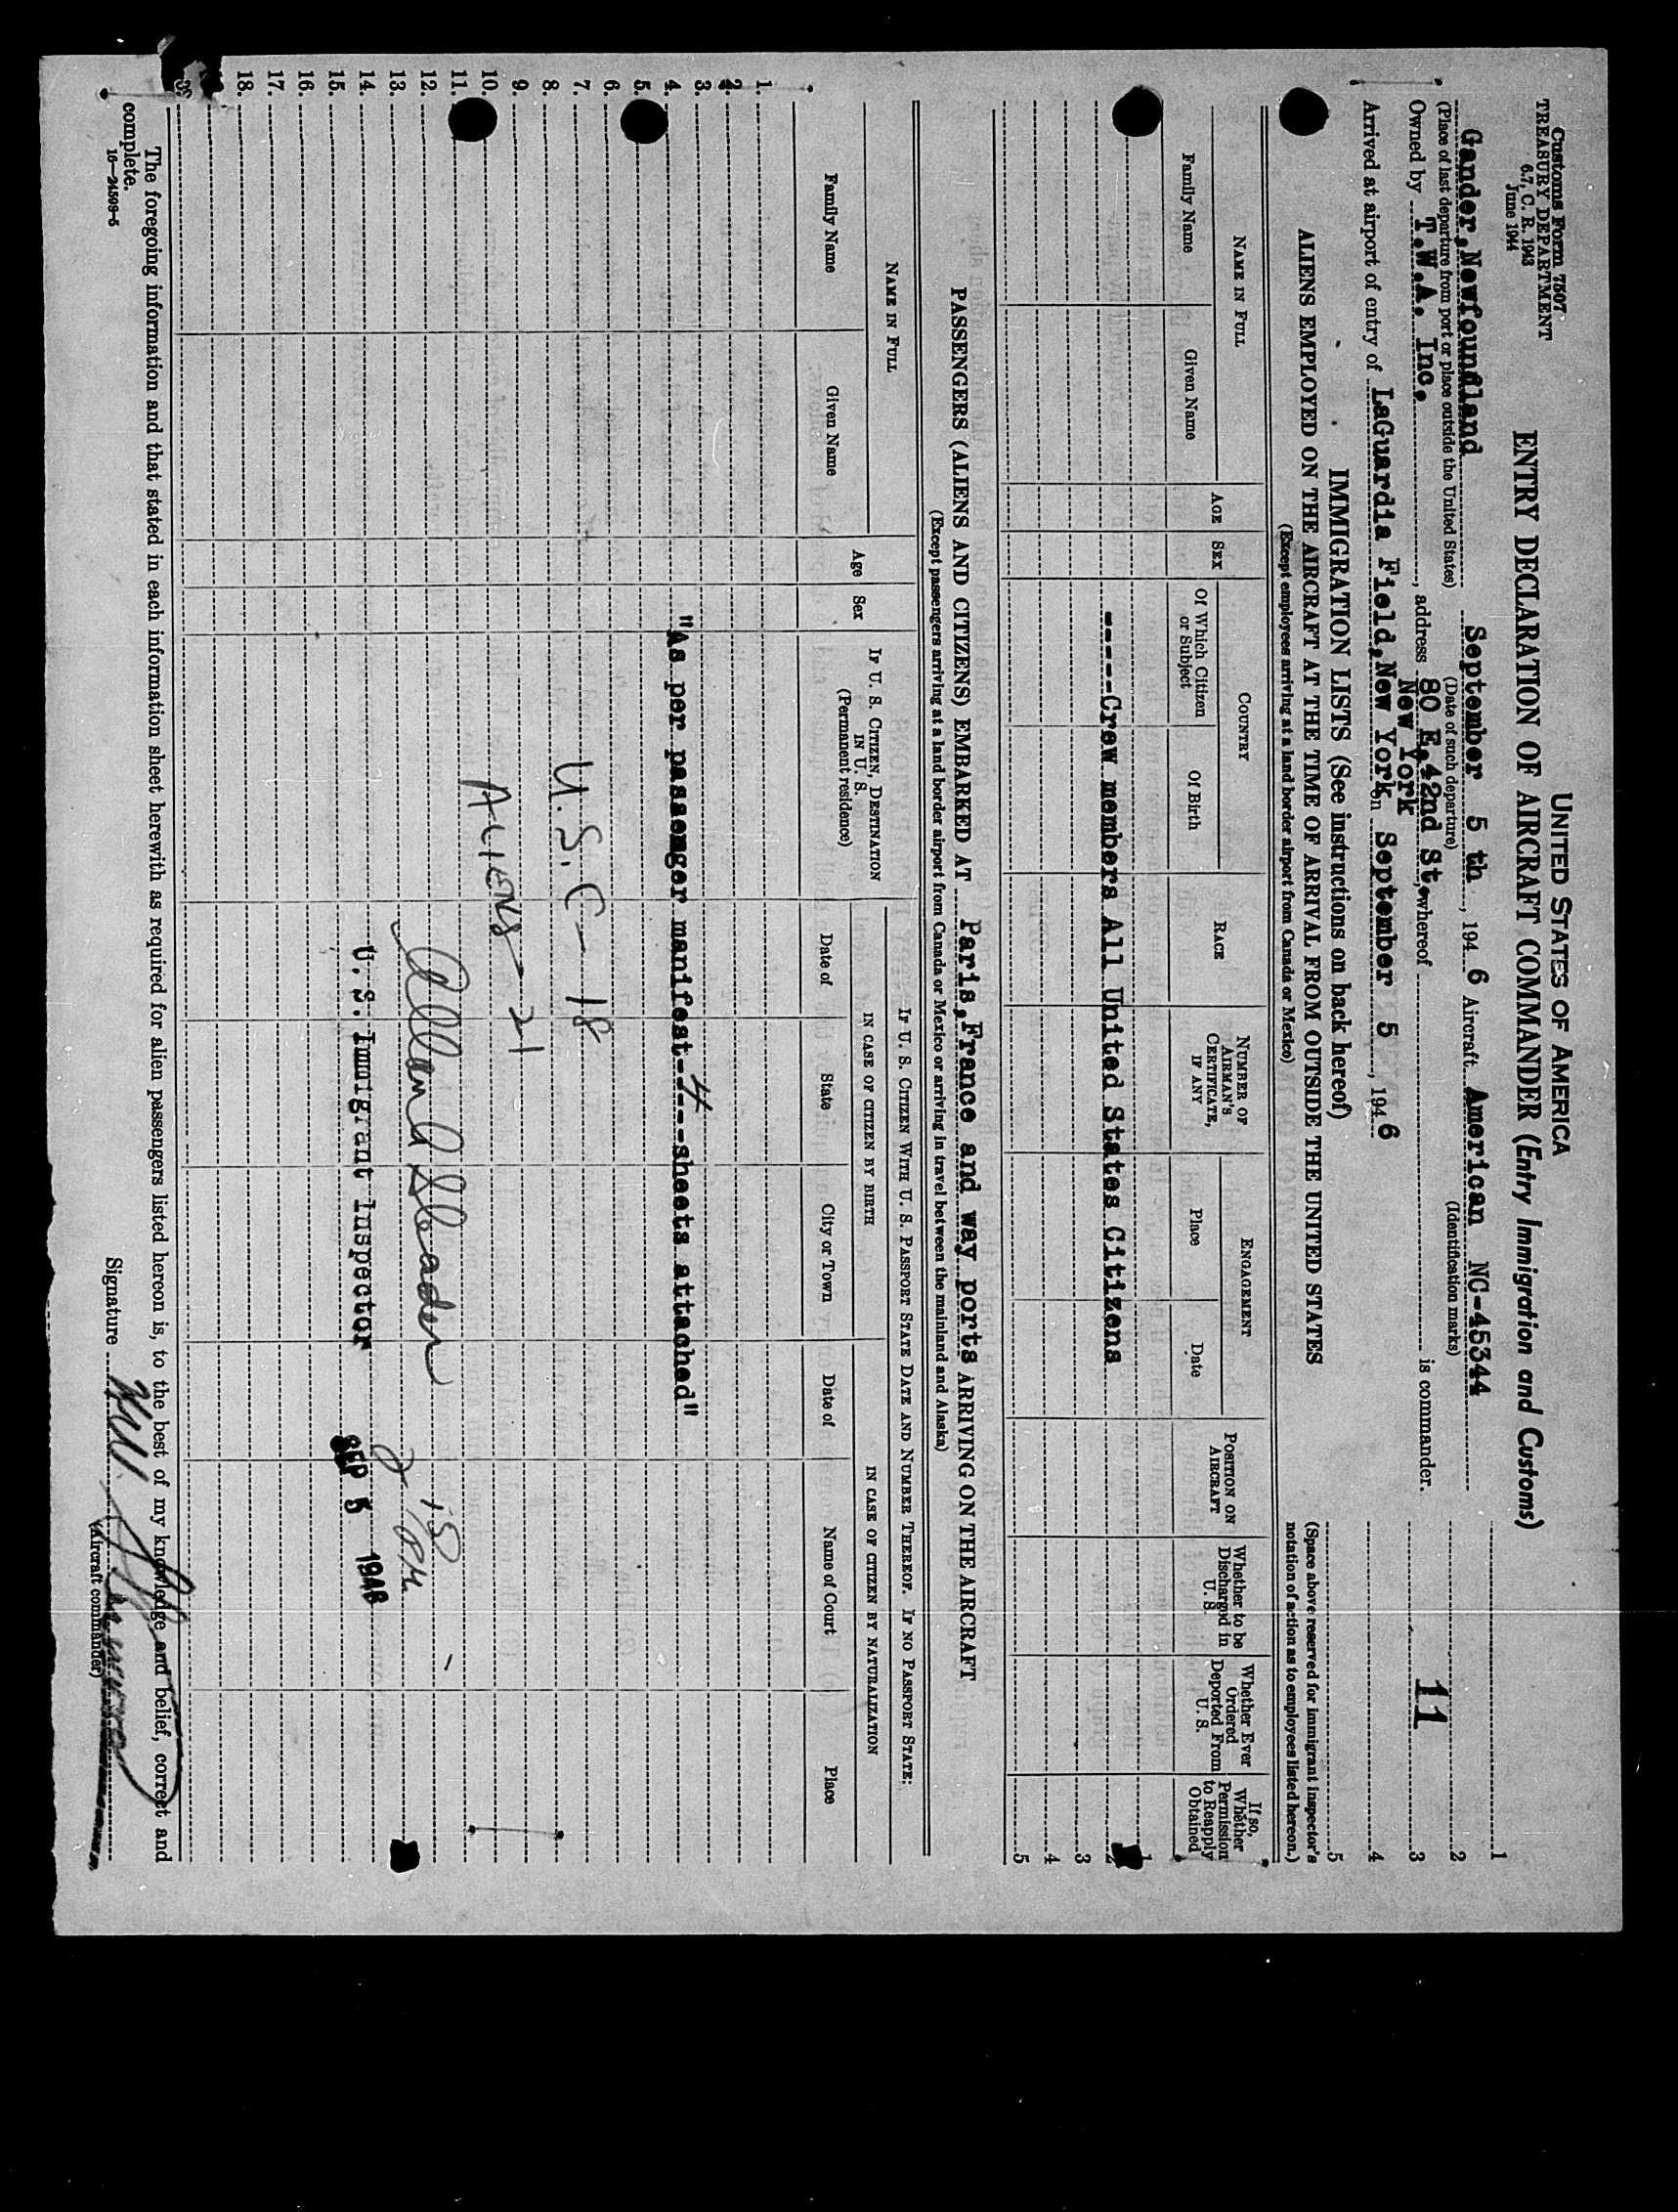 Customs Form 7507
TREASURY DEPARTMENT
6.7, C. R. 1943
June 1944
UNITED STATES OF AMERICA
ENTRY DECLARATION OF AIRCRAFT COMMANDER (Entry Immigration and Customs)
Gander, Newfoundland September 5 th, 1946 Aircraft American NC-45344
(Place of last departure from port or place outside the United States) (Date of such departure) (Identification marks)
Owned by T.W.A. Inc., address 80 E. 42nd St., whereof is commander.
New York
Arrived at airport of entry of LaGuardia Field, New York on September 5, 1946
11
1
2
3
4
5
(Space above reserved for immigrant inspector's notation of action as to employees listed hereon.)
IMMIGRATION LISTS (See instructions on back hereof)
ALIENS EMPLOYED ON THE AIRCRAFT AT THE TIME OF ARRIVAL FROM OUTSIDE THE UNITED STATES
(Except employees arriving at a land border airport from Canada or Mexico)
NAME IN FULL
Family Name
Given Name
AGE
SEX
COUNTRY
Of Which Citizen or Subject
Of Birth
RACE
NUMBER OF AIRMAN'S CERTIFICATE, IF ANY
ENGAGEMENT
Place
Date
POSITION ON AIRCRAFT
Whether to be Discharged in U. S.
Whether Ever Ordered Deported From U. S.
If so, Whether Permission to Reapply Obtained
1
-----Crew members All United States Citizens 2
3
4
5
PASSENGERS (ALIENS AND CITIZENS) EMBARKED AT Paris, France and way ports ARRIVING ON THE AIRCRAFT
(Except passengers arriving at a land border airport from Canada or Mexico or arriving in travel between the mainland and Alaska)
NAME IN FULL
Family Name
Given Name
Age
Sex
IF U. S. CITIZEN, DESTINATION IN U. S.
(Permanent residence)
IF U. S. CITIZEN WITH U. S. PASSPORT STATE DATE AND NUMBER THEREOF. IF NO PASSPORT STATE:
IN CASE OF CITIZEN BY BIRTH
Date of
State
City or Town
IN CASE OF CITIZEN BY NATURALIZATION
Date of
Name of Court
Place
1.
2.
3.
4. "As per passenger manifest-4---sheets attached"
5.
6.
7. U. S. C - 18
8.
9.
10. ALIENS - 21
11.
12.
13.
14. U. S. Immigrant Inspector SEP 5 1946
15.
16.
17.
18.
The foregoing information and that stated in each information sheet herewith as required for alien passengers listed hereon is, to the best of my knowledge and belief, correct and complete.
16—24598-5
Signature
(Aircraft commander)